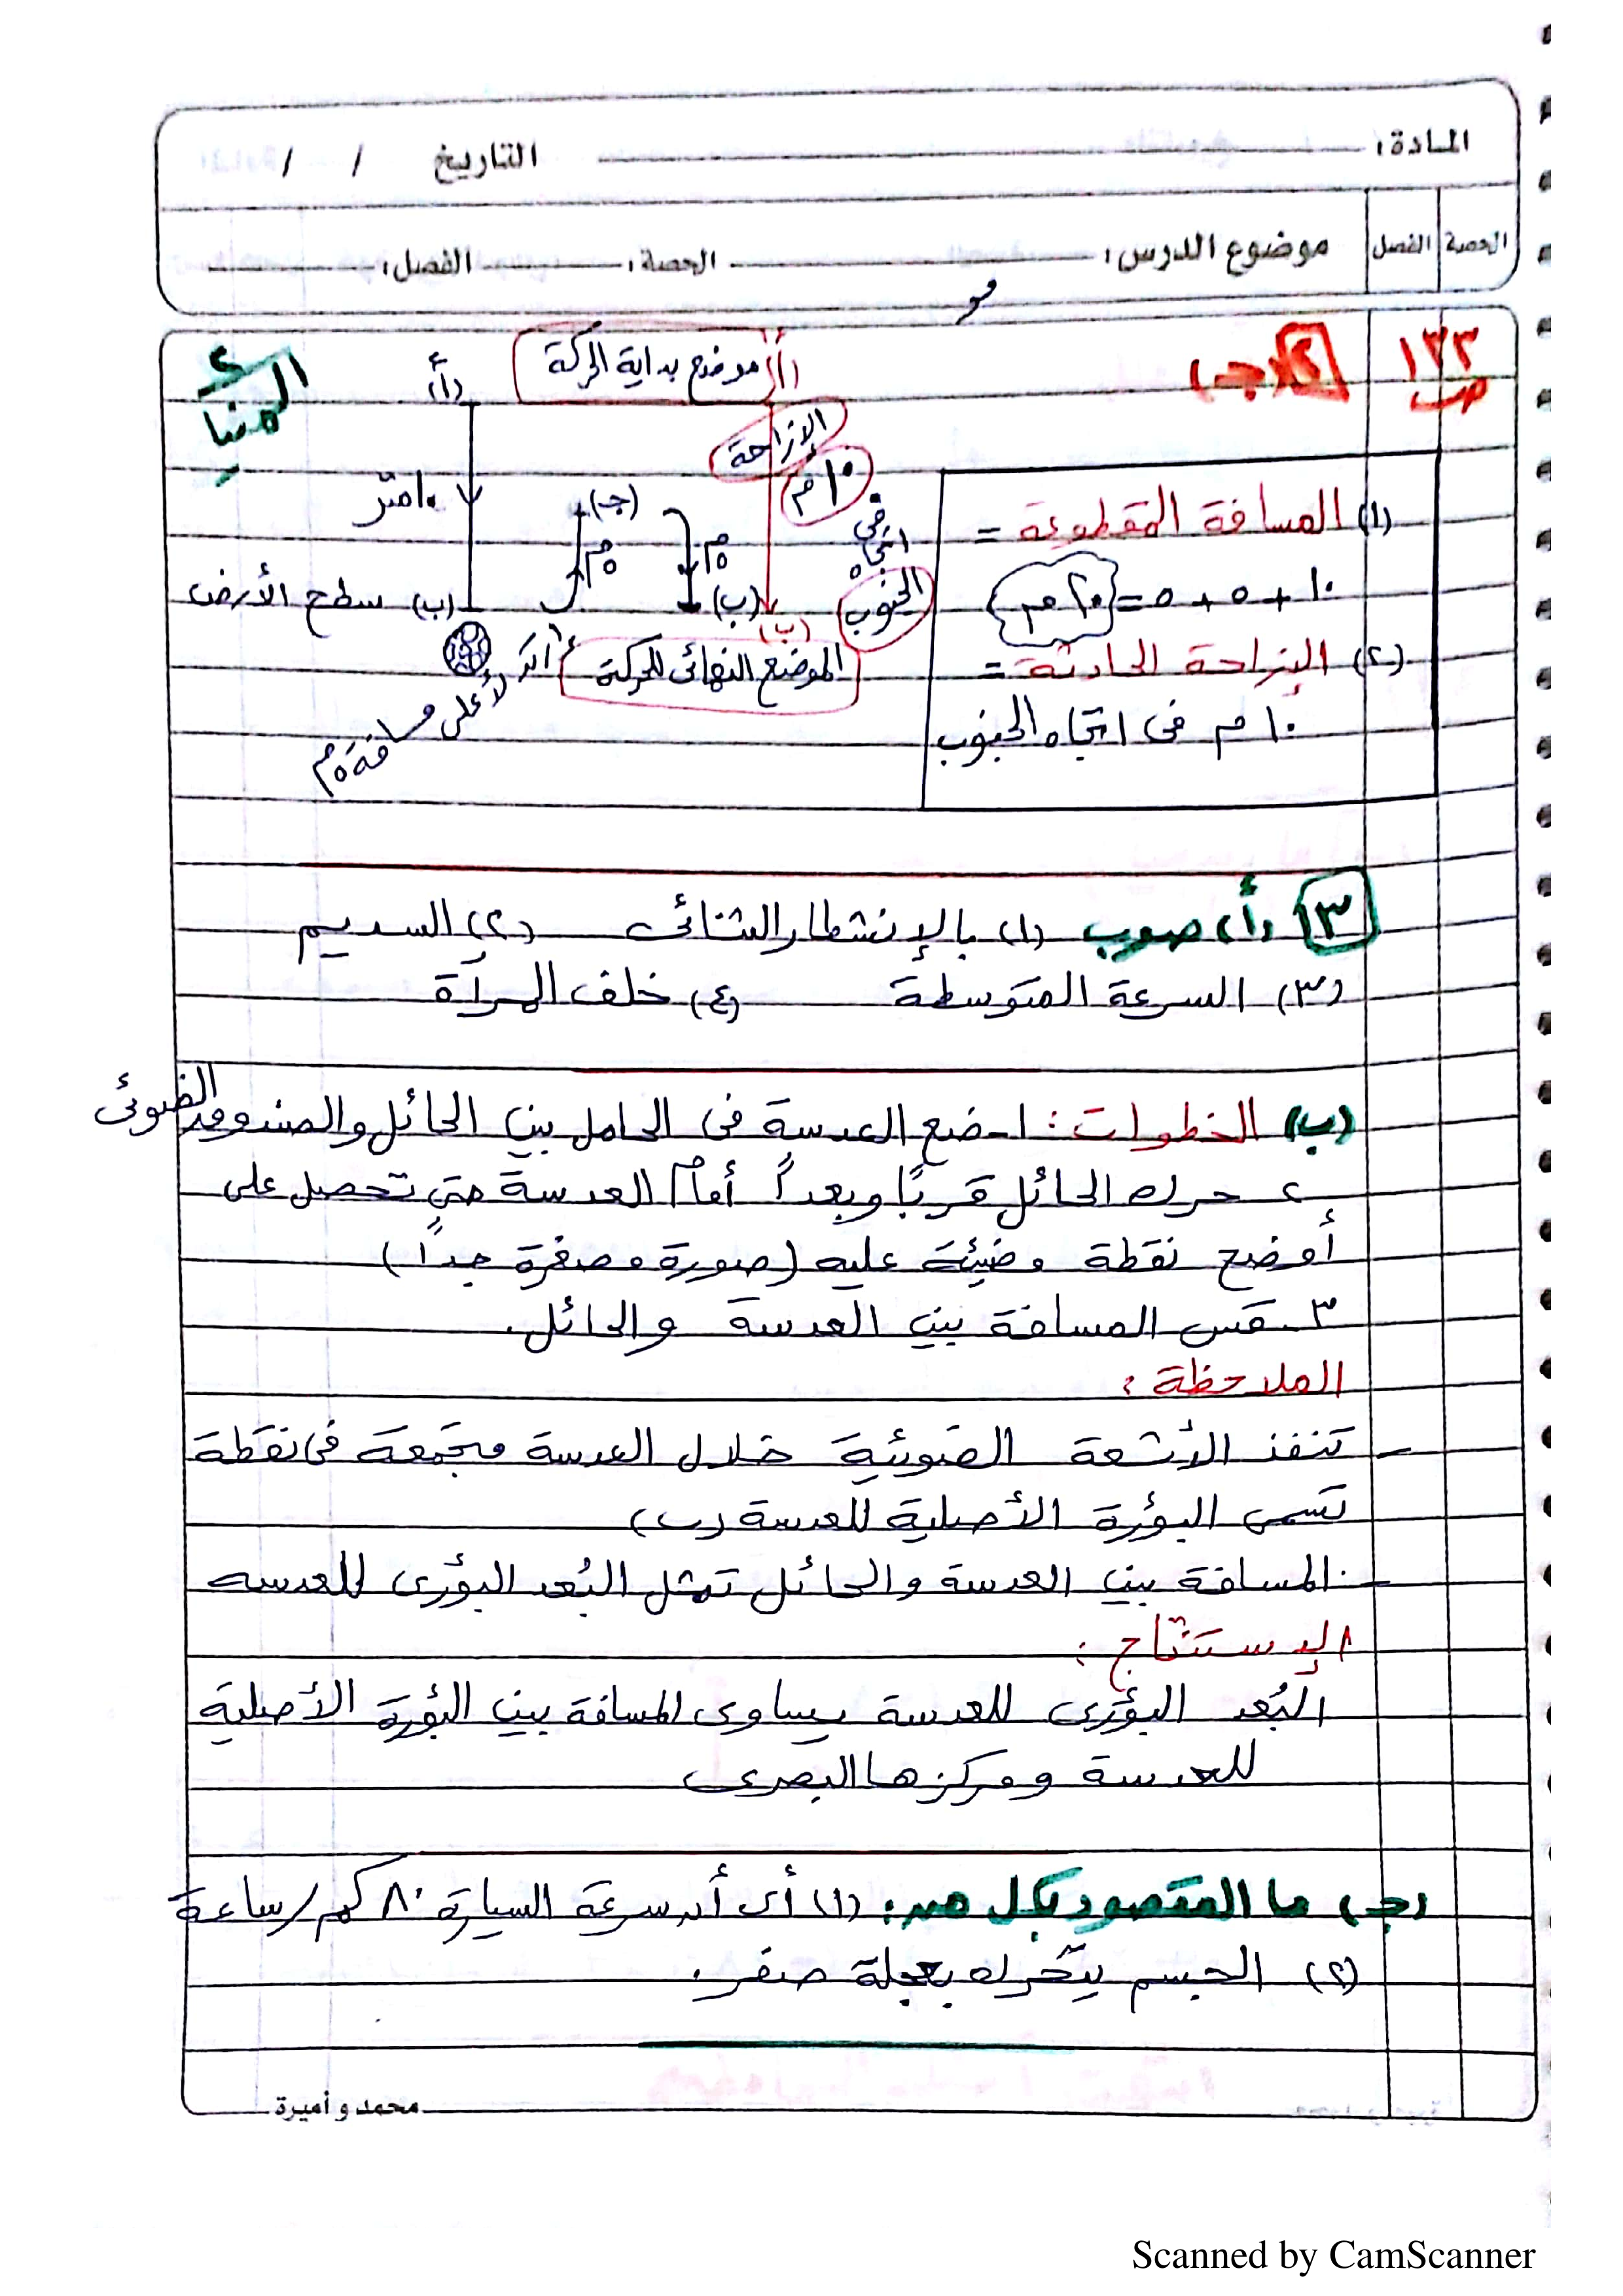 المادة: التاريخ / /
الحصة الفصل موضوع الدرس: الحصة: الفصل:
ص ١٣٣
٢ (جـ)
المنيا
(أ) موضع بداية الحركة
(أ)
الإزاحة
١٠ م
في اتجاه الجنوب
١٠ متر
(جـ)
٥ م
٥ م
(ب)
(ب)
(ب) سطح الأرض
الموضع النهائى للحركة
لأعلى مسافة ٥ م
(١) المسافة المقطوعة =
١٠ + ٥ + ٥ = ٢٠ م
(٢) الإزاحة الحادثة =
١٠ م فى اتجاه الجنوب
٣ (أ) صوب (١) بالإنشطار الثنائى (٢) السديم
(٣) السرعة المتوسطة (٤) خلف المرآة
(ب) الخطوات: ١- ضع العدسة فى الحامل بين الحائل والصندوق الضوئى
٢ حرك الحائل قربًا وبعدًا أمام العدسة حتى تحصل على
أوضح نقطة مضيئة عليه (صورة مصغرة جدًا)
٣- قس المسافة بين العدسة والحائل.
الملاحظة:
- تنفذ الأشعة الضوئية خلال العدسة متجمعة فى نقطة
تسمى البؤرة الأصلية للعدسة (ب)
- المسافة بين العدسة والحائل تمثل البُعد البؤرى للعدسه
الإستنتاج:
البُعد البؤرى للعدسة يساوى المسافة بين البؤرة الأصلية
للعدسة ومركزها البصرى
(جـ) ما المقصود بكل من: (١) أى أن سرعة السيارة ٨٠ كم/ساعة
(٢) الجسم يتحرك بعجلة صفر.
محمد و أميرة
Scanned by CamScanner